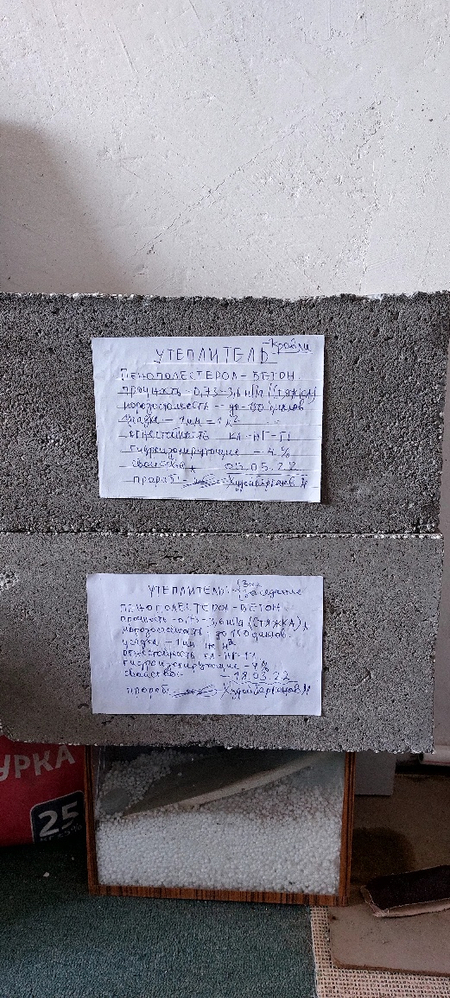 УТЕПЛИТЕЛЬ - Кровли
ПЕНОПОЛЕСТЕРОЛ - БЕТОН.
прочность - 0,73 - 3,6 мПа (стяжка)
морозостойкость - до 150 циклов
усадка - 1 мм = 1 м²
огнестойкость кл - НГ - Г1
гидроизолирующие - 4 %
свойство 03.05.22
прораб
УТЕПЛИТЕЛЬ:
ПЕНОПОЛЕСТЕРОЛ - БЕТОН
прочность - 0,73 - 3,6 мПа (СТЯЖКА)
морозостойкость до 150 циклов.
усадка - 1 мм
огнестойкость кл - НГ - Г1
гидроизолирующие - 4 %
свойство - 18.03.22
прораб
УРКА
25